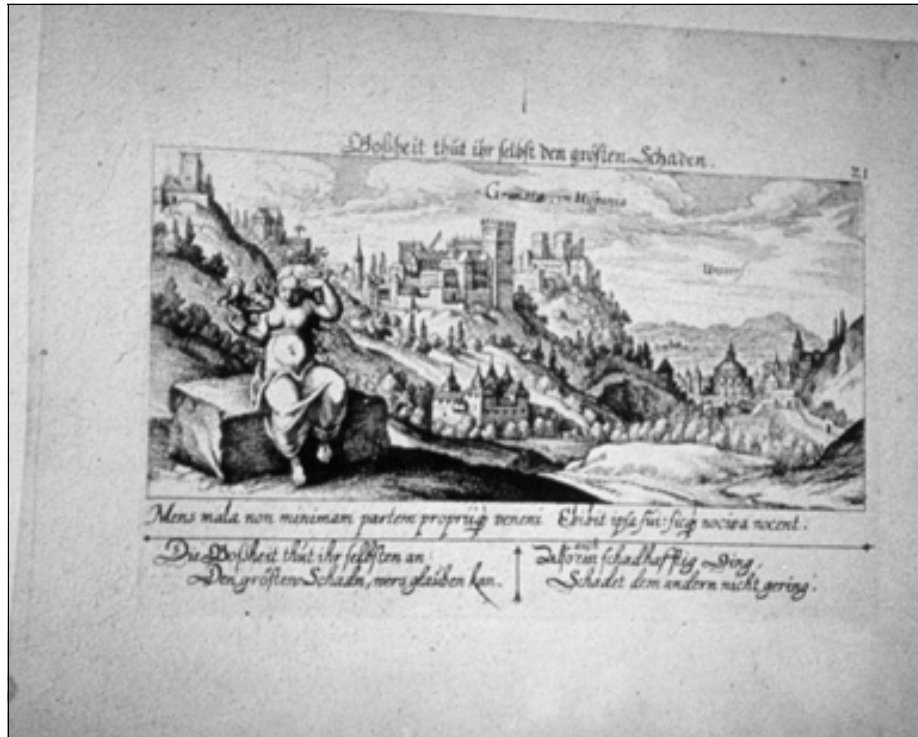 Boßheit thut ihr selbst den grösten Schaden.
21
Granata in Hispania
Mens mala non minimam partem propriiq veneni Ebibit ipsa sui: sicq nociva nocent.
Die Boßheit thut ihr selbsten an
Den grösten Schadn, wers glauben kan.
auch
Also ein schadhafftig Ding,
Schadet dem andern nicht gering.